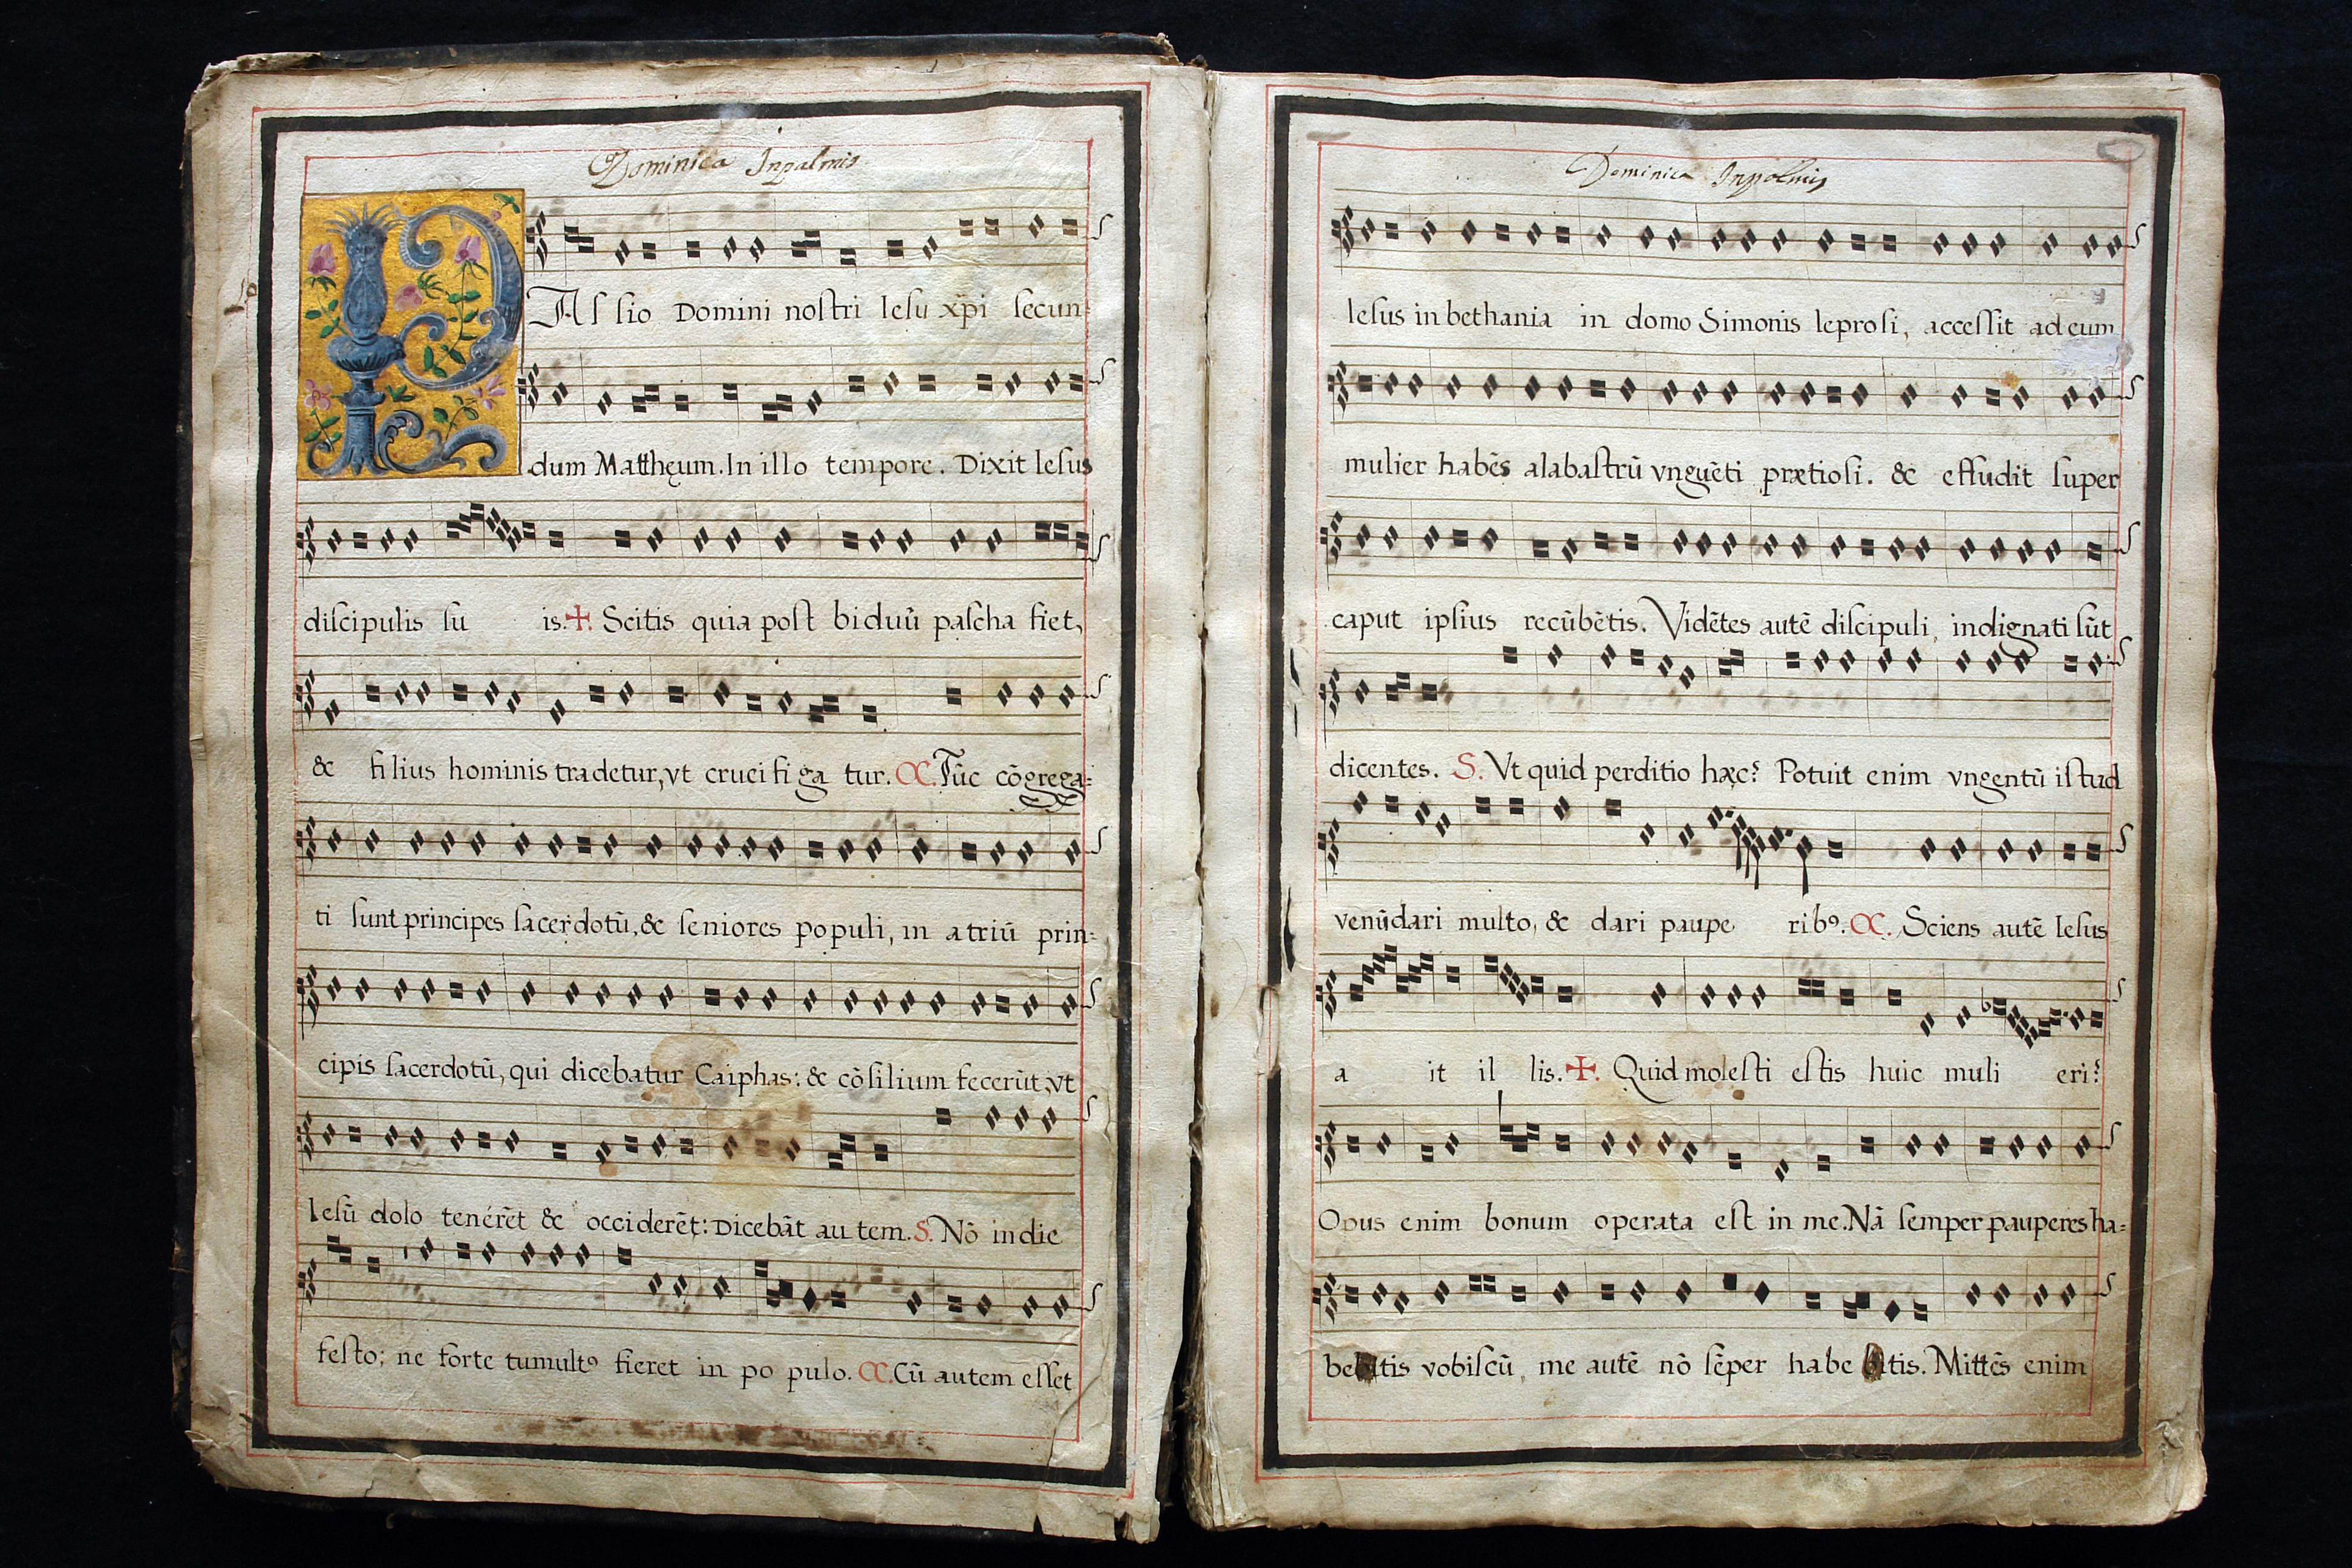 Dominica Inpalmis
PAſſio Domini noſtri Ieſu xp̄i ſecun=
dum Mattheum. In illo tempore. Dixit Ieſus
diſcipulis ſu is. ✠. Scitis quia poſt biduū paſcha fiet,
& filius hominis tradetur, vt cruci fi ga tur. C. Tūc cōgrega=
ti ſunt principes ſacerdotū, & ſeniores populi, in atriū prin=
cipis ſacerdotū, qui dicebatur Caiphas: & cōſilium fecerūt, vt
Ieſū dolo tenerēt & occiderēt: Dicebāt au tem. S. Nō in die
feſto; ne forte tumultꝰ fieret in po pulo. C. Cū autem eſſet
Dominica Inpalmis
Ieſus in bethania in domo Simonis leproſi, acceſſit ad eum
mulier habēs alabaſtrū vnguēti prætioſi. & effudit ſuper
caput ipſius recūbētis. Vidētes autē diſcipuli, indignati ſūt
dicentes. S. Vt quid perditio hæc? Potuit enim vngentū iſtud
venūdari multo, & dari paupe ribꝰ. C. Sciens autē Ieſus
a it il lis. ✠. Quid moleſti eſtis huic muli eri?
Opus enim bonum operata eſt in me. Nā ſemper pauperes ha=
bebitis vobiſcū, me autē nō ſēper habe bitis. Mittēs enim